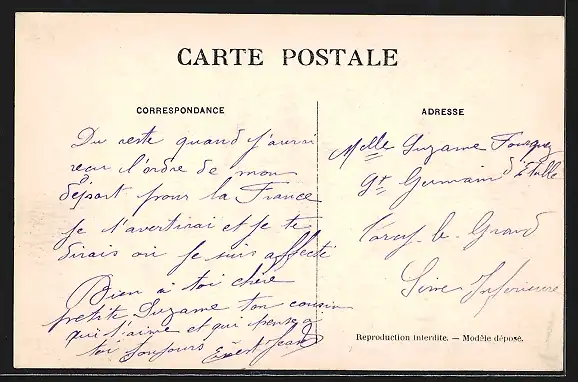 CARTE POSTALE
CORRESPONDANCE
Du reste quand j'aurai
reçu l'ordre de mon
départ pour la France
je t'avertirai et je te
dirais où je suis affecté
Bien à toi chère
petite Suzanne ton cousin
qui t'aime et qui pense à
toi toujours
ADRESSE
Melle Suzanne
St Germain d'Etalle
le Grand
Seine Inférieure
Reproduction interdite. — Modèle déposé.